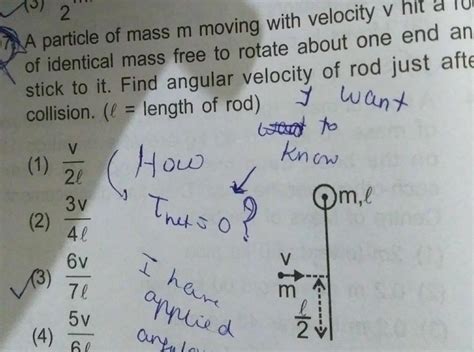 (3) 2
7. A particle of mass m moving with velocity v hit a
of identical mass free to rotate about one end an
stick to it. Find angular velocity of rod just afte
collision. (ℓ = length of rod)
I want
want to
know
(1) v/2ℓ
How
τnet = 0 ?
(2) 3v/4ℓ
(3) 6v/7ℓ
I have
applied
(4) 5v/6ℓ
m,ℓ
v
m
ℓ/2